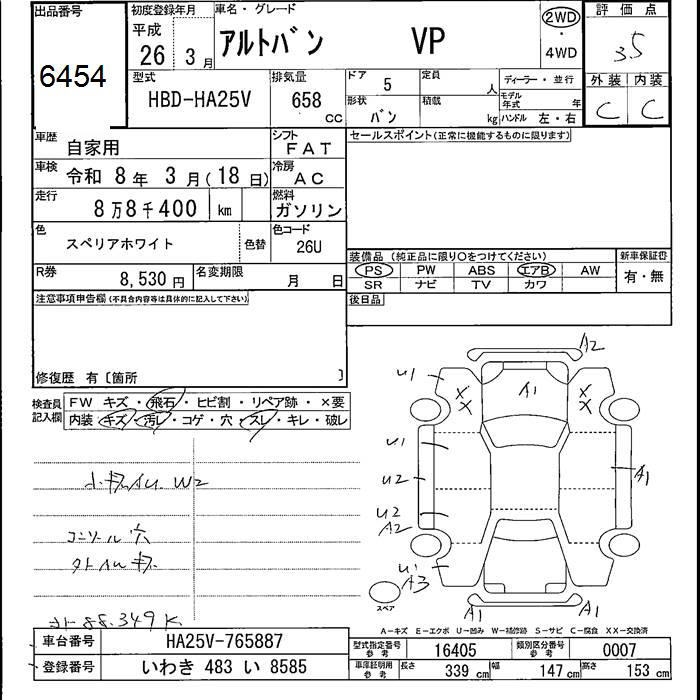 出品番号
6454
初度登録年月
平成
26 3月
車名・グレード
アルトバン VP
2WD
・
4WD
評価点
3.5
外装 内装
C C
型式
HBD-HA25V
排気量
658
CC
ドア 5
形状 バン
定員 人
積載 kg
ディーラー・並行
モデル年式 年
ハンドル 左・右
車歴 自家用
シフト FAT
車検 令和 8年 3月(18日)
冷房 AC
走行 8万8千400 km
燃料 ガソリン
色 スペリアホワイト 色替
色コード 26U
R券 8,530円
名変期限 月 日
セールスポイント(正常に機能するものに限ります)
装備品(純正品に限り○をつけてください)
新車保証書
PS PW ABS エアB AW
SR ナビ TV カワ
有・無
後日品
注意事項申告欄(不具合内容等は具体的に記入して下さい)
修復歴 有〔箇所 〕
検査員記入欄
FW キズ・飛石・ヒビ割・リペア跡・×要
内装 キズ・汚レ・コゲ・穴・スレ・キレ・破レ
W2
コンソール穴
88.349K
A2
U1
X
X
A1
X
X
U1
U2
A1
U2
A2
U1
A3
スペア
A1
A1
A-キズ E-エクボ U-凹み W-補修跡 S-サビ C-腐食 XX-交換済
車台番号 HA25V-765887
登録番号 いわき 483 い 8585
型式指定番号 参考 16405
類別区分番号 参考 0007
車庫証明用 参考 長さ 339cm 幅 147cm 高さ 153cm